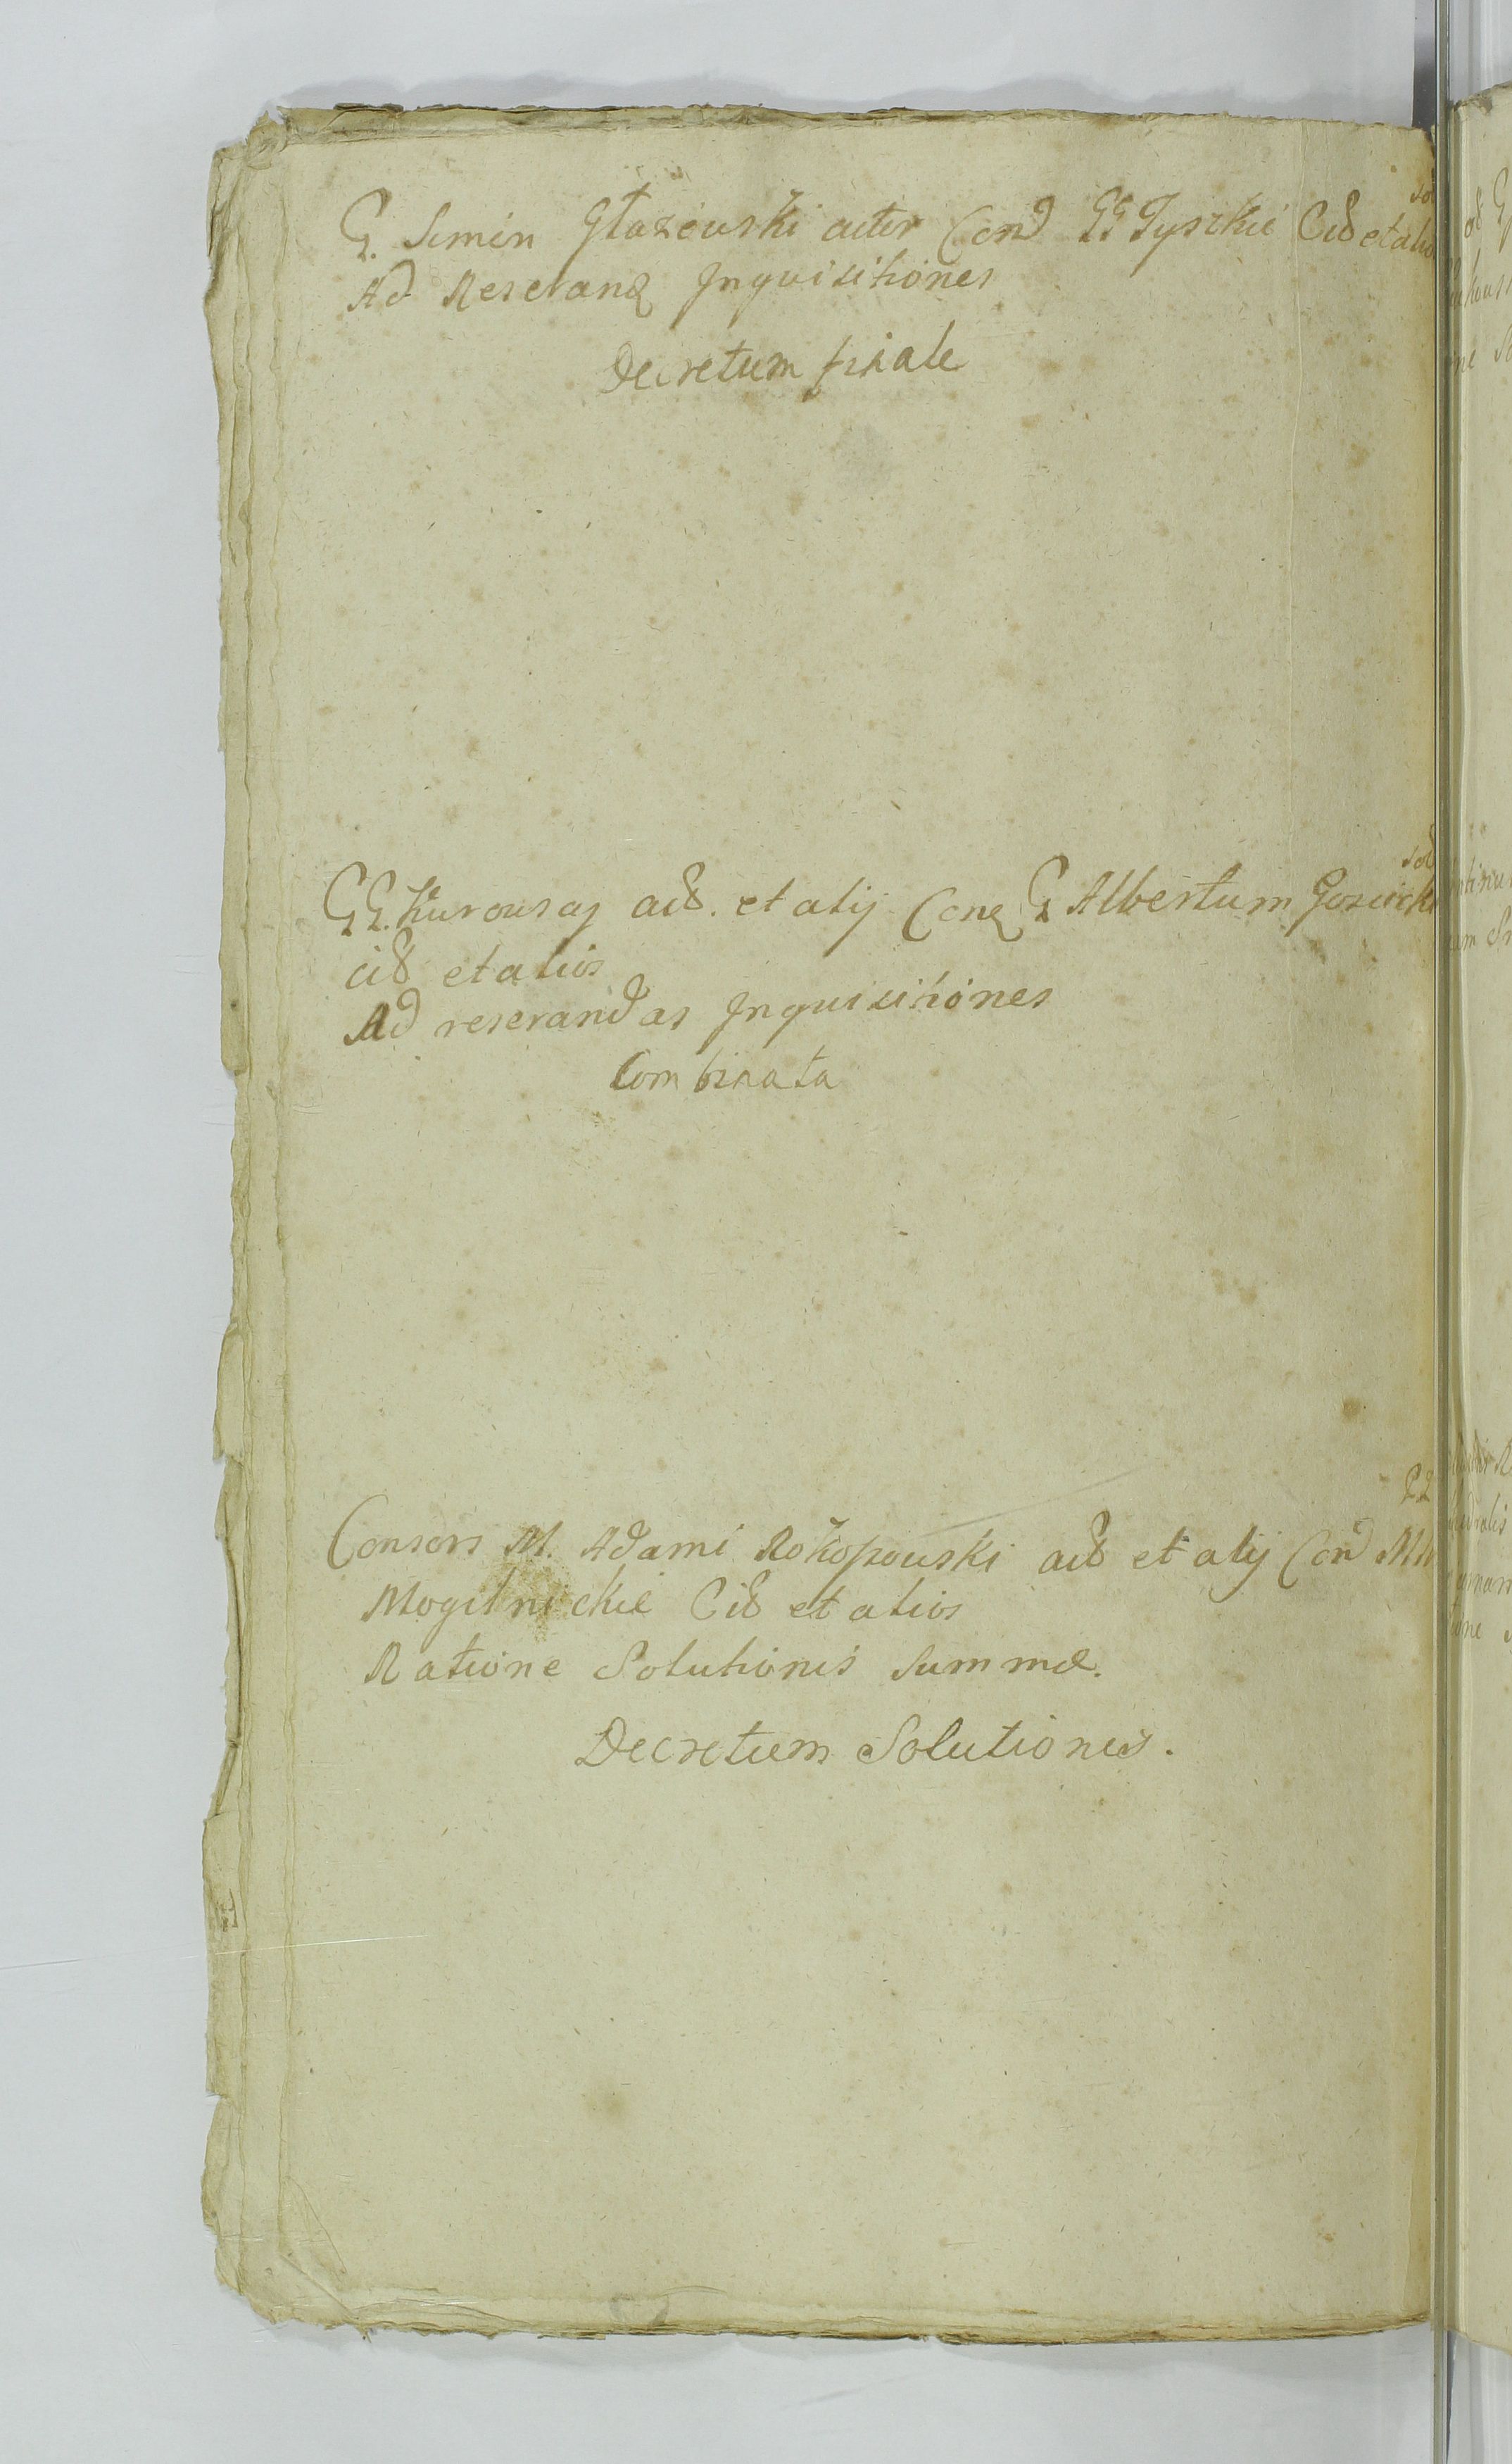 sol
G. Simon Głazewski actor Con͠d GG Tyszkie Cit͠ et alios
Ad Reserand Inquisitiones
Decretum finale
sol
GG. Kurowscy act͠. et alij Con͠ G Albertum
cit͠ et alios
Ad reserandas Inquisitiones
Combinata
Consors M. Adami Rokopowski act͠ et alij Con͠d MM
Mogilnickie Cit͠ et alios
Ratione Solutionis Summæ.
Decretum Solutionis.